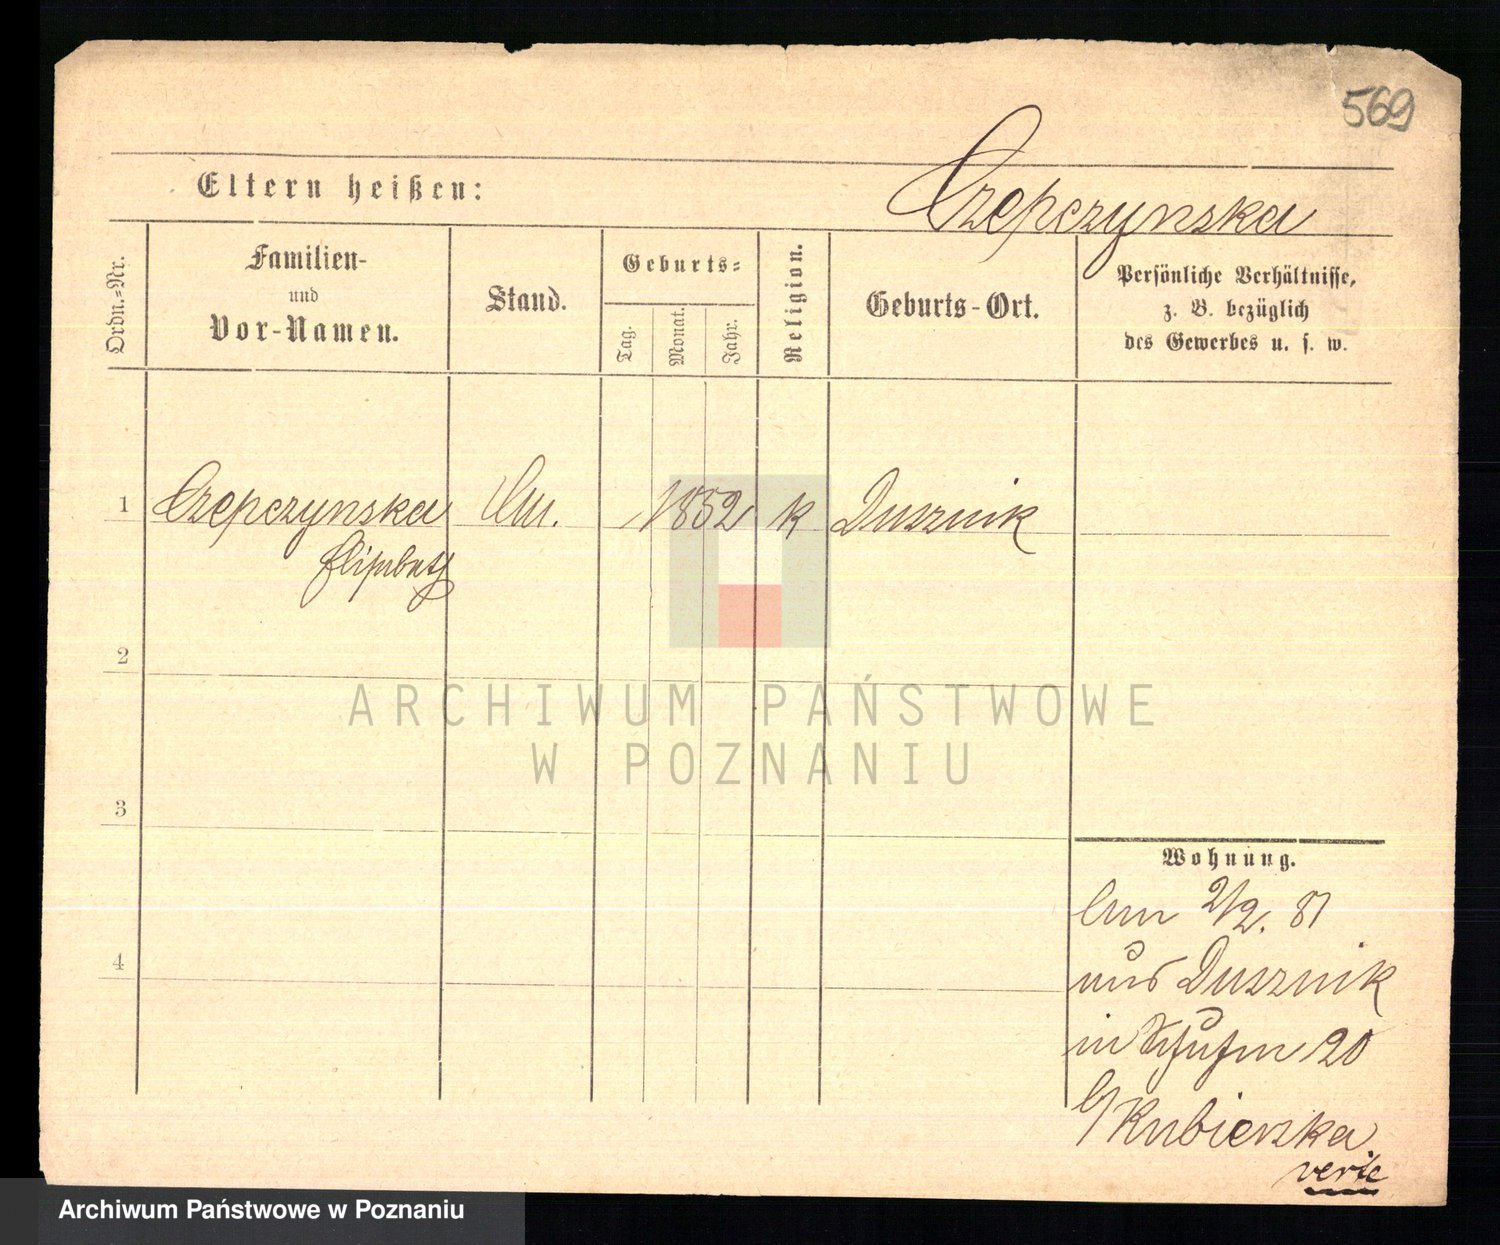 569
Eltern heißen:
Czepczynska
Ordn.-Nr.
Familien-
und
Vor-Namen.
Stand.
Geburts-
Tag.
Monat.
Jahr.
Religion.
Geburts-Ort.
Persönliche Verhältnisse,
z. B. bezüglich
des Gewerbes u. s. w.
1 Czepczynska 1852 k Dusznik
Elisabeth
2
3
4
Wohnung.
2/2. 81
aus Dusznik
in 20
b/ Kubierska
verte
ARCHIWUM PAŃSTWOWE
W POZNANIU
Archiwum Państwowe w Poznaniu